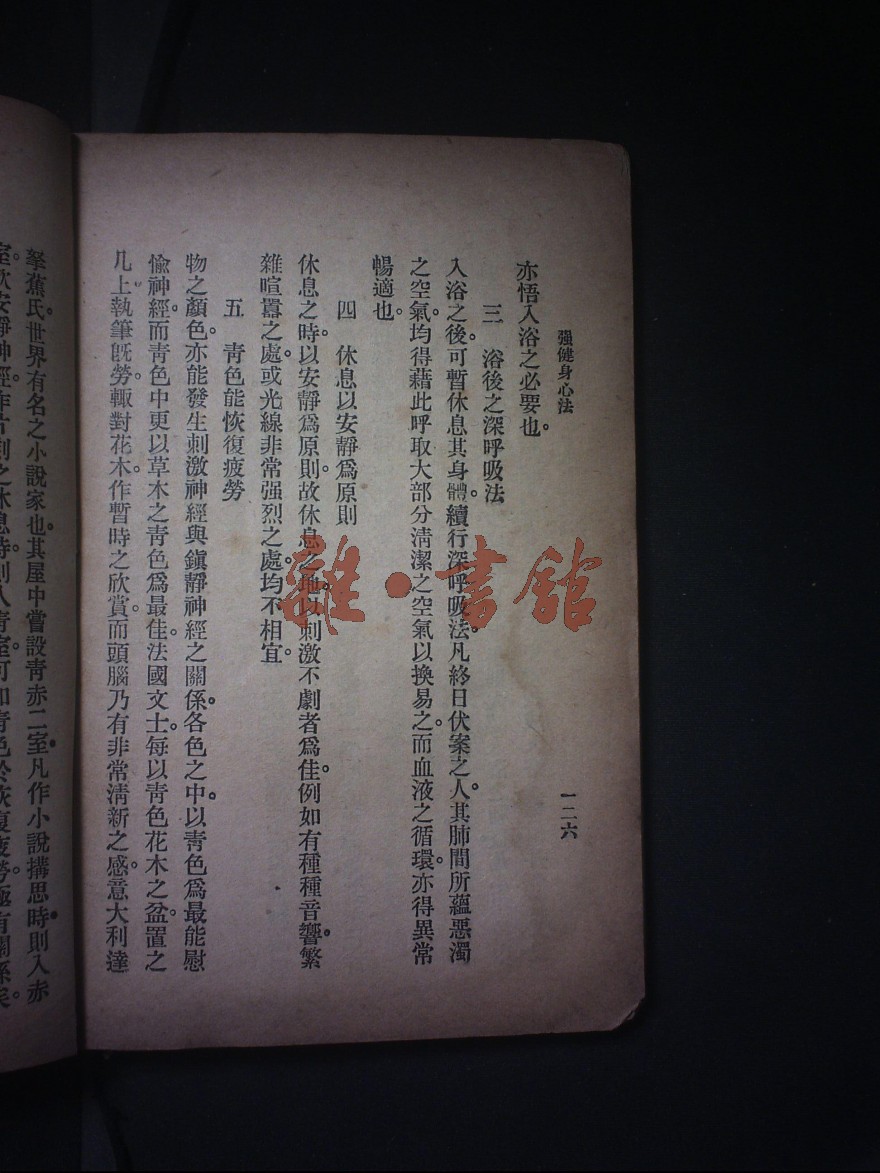 强健身心法
一二六
亦悟入浴之必要也。
三　浴後之深呼吸法
入浴之後。可暫休息其身體。續行深呼吸法。凡終日伏案之人。其肺間所蘊惡濁
之空氣。均得藉此呼取大部分清潔之空氣以換易之。而血液之循環。亦得異常
暢適也。
四　休息以安靜爲原則
休息之時。以安靜爲原則。故休息之地。以刺激不劇者爲佳。例如有種種音響。繁
雜喧囂之處。或光線非常强烈之處。均不相宜。
五　靑色能恢復疲勞
物之顏色。亦能發生刺激神經與鎭靜神經之關係。各色之中。以靑色爲最能慰
愉神經。而靑色中更以草木之靑色爲最佳。法國文士。每以靑色花木之盆。置之
几上。執筆旣勞。輒對花木。作暫時之欣賞。而頭腦乃有非常淸新之感。意大利達
拏蕉氏。世界有名之小說家也。其屋中嘗設靑赤二室。凡作小說搆思時。則入赤
室。欲安靜神經。作片刻之休息時。則入靑室。可知靑色於恢復疲勞。極有關係矣。
雜·書館